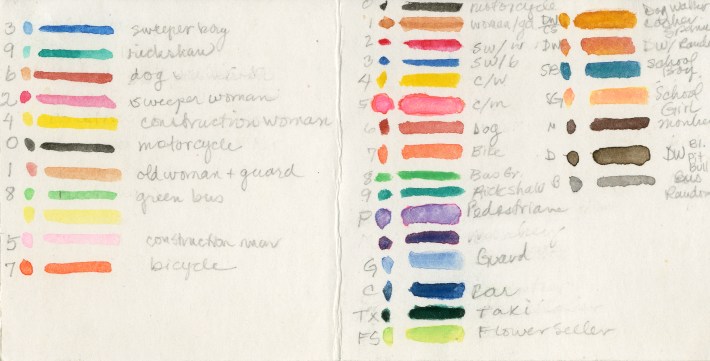 3 sweeper boy
9 rickshaw
6 dog
2 sweeper woman
4 construction woman
0 motorcycle
1 old woman + guard
8 green bus
5 construction man
7 bicycle
motorcycle
1
2 SW/W
3 SW/b
4 C/W
5 C/m
6 Dog
7 Bike
8 Bus Gr.
9 Rickshaw
P Pedestrians
G Guard
C Car
TX Taxi
FS Flower Seller
Dog Walker
DW
DW DW/
SB School Boy
SG School Girl
M
D DW Bl. Pit Bull
B Bus
Random